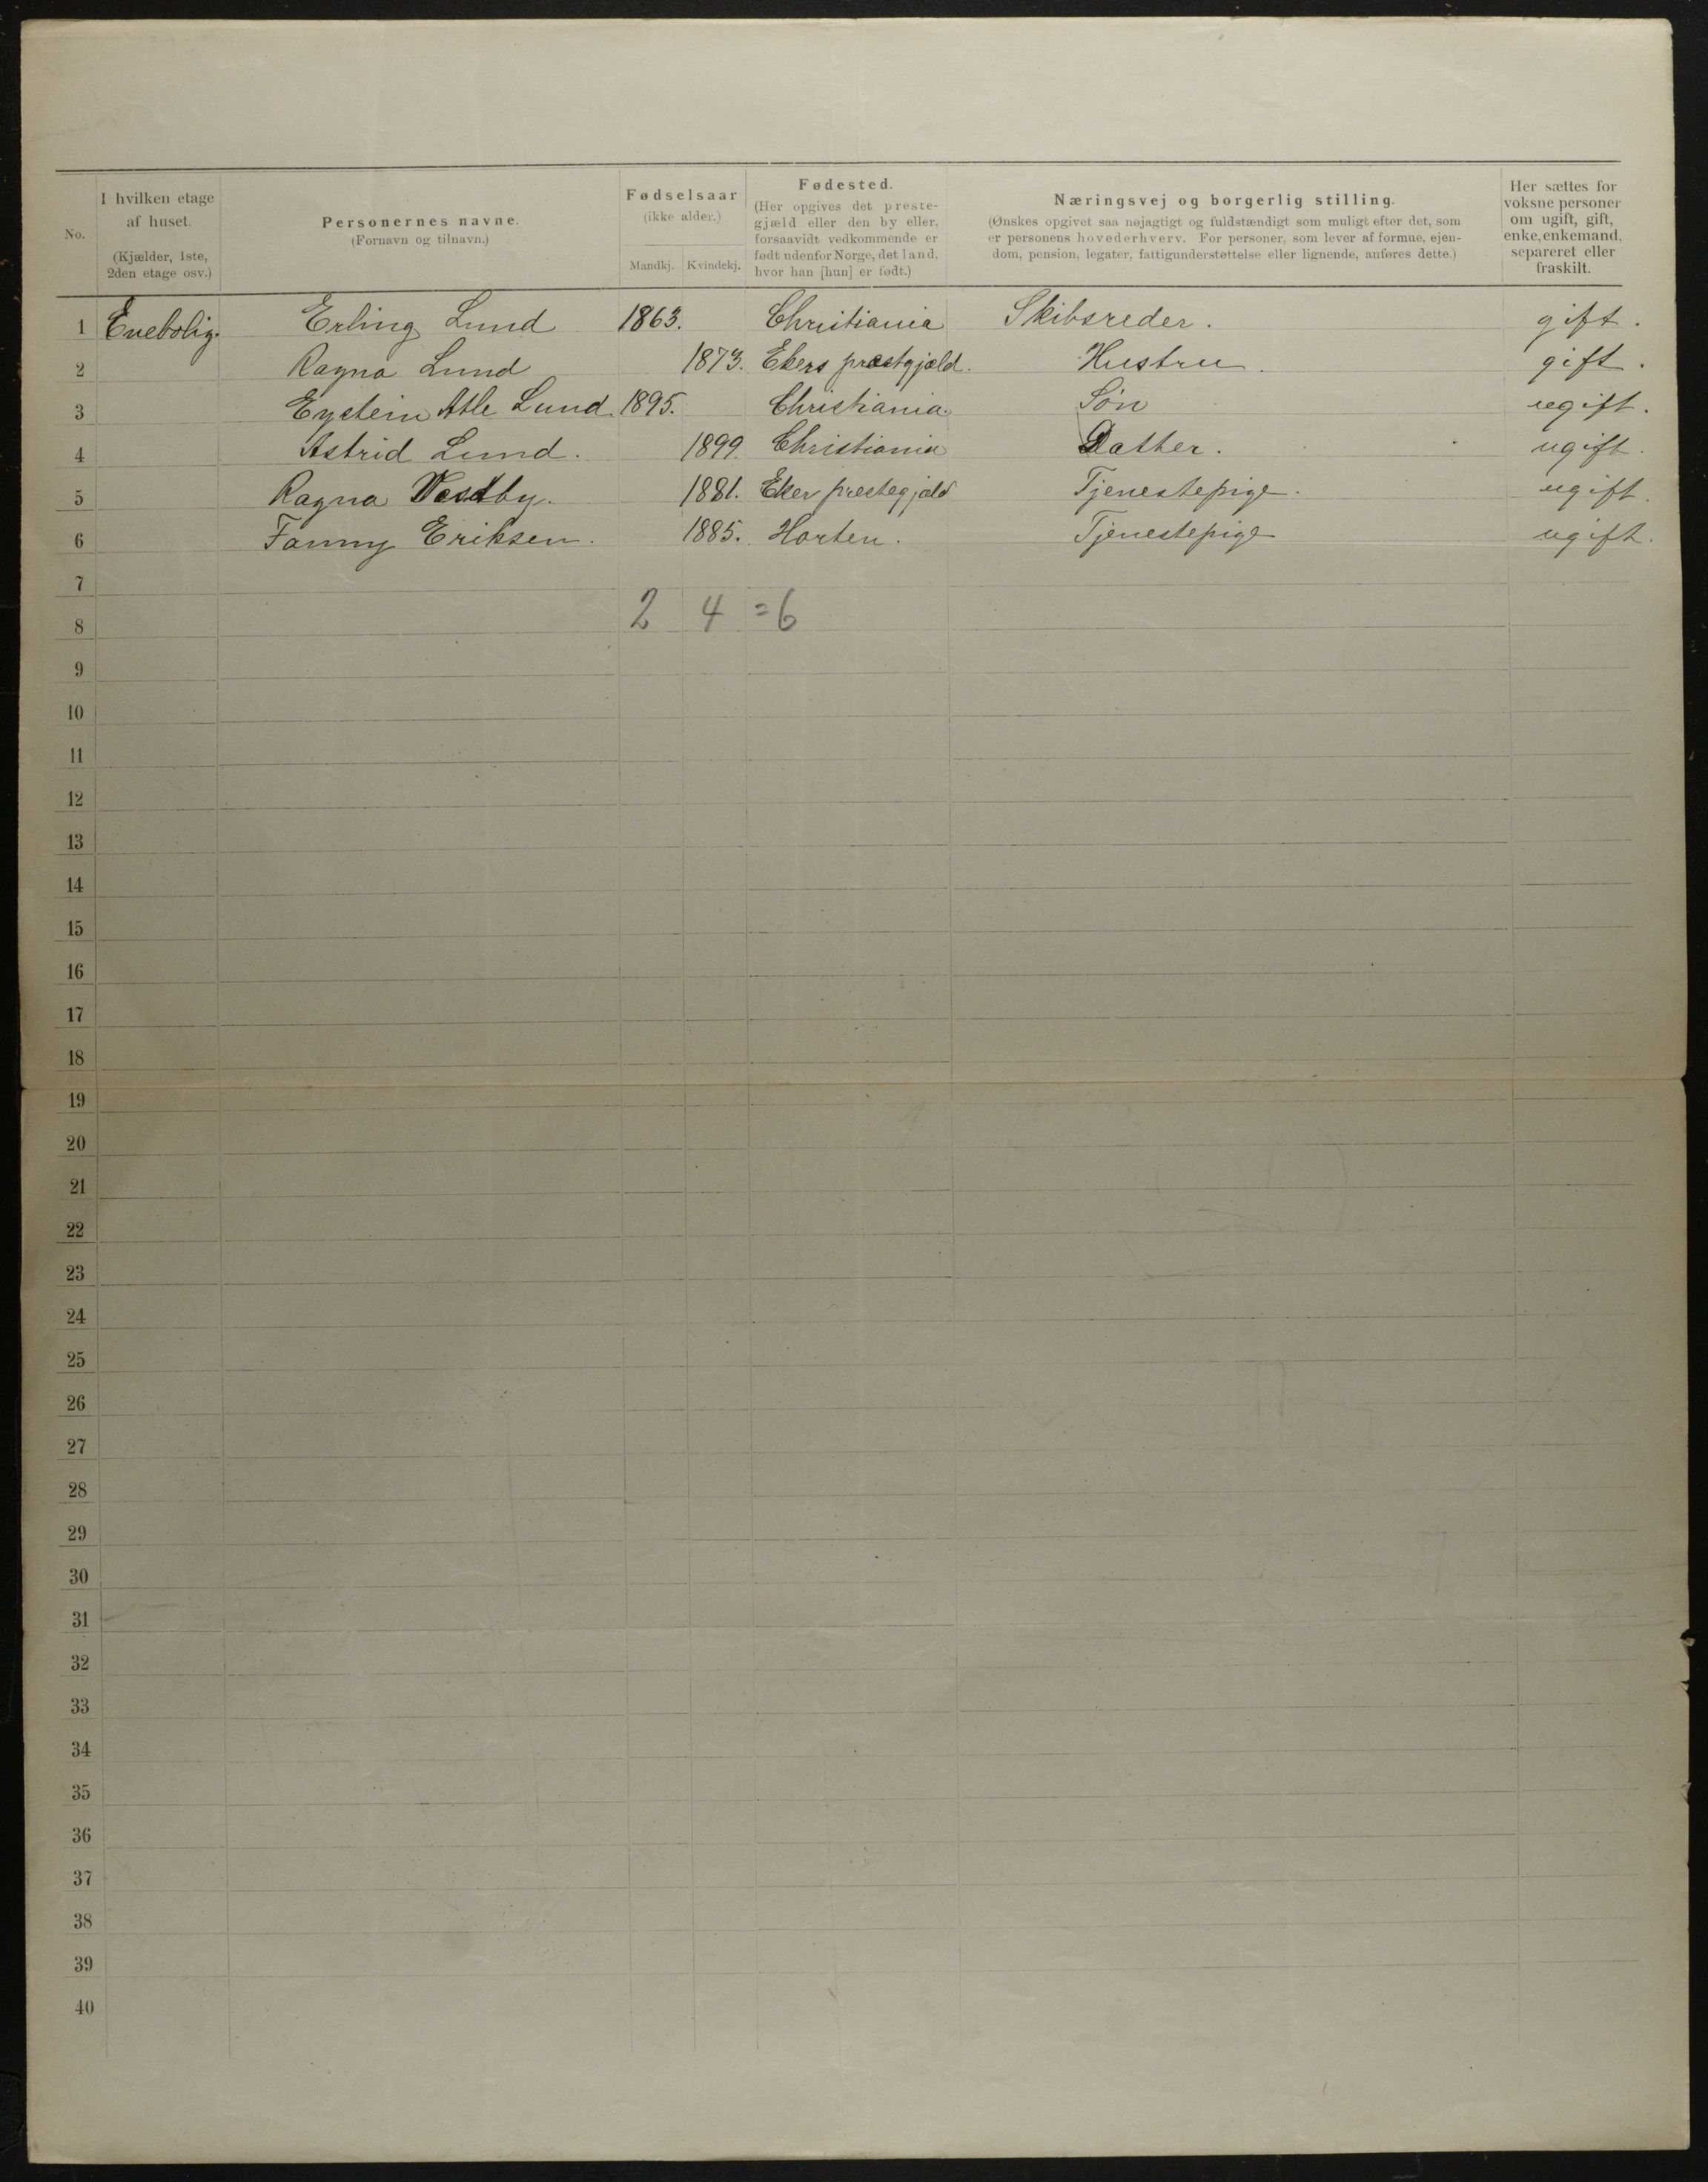 No.
I hvilken etage af huset. (Kjælder, 1ste, 2den etage osv.)
Personernes navne. (Fornavn og tilnavn.)
Fødselsaar (ikke alder.)
Mandkj. Kvindekj.
Fødested. (Her opgives det prestegjæld eller den by eller, forsaavidt vedkommende er født udenfor Norge, det land, hvor han [hun] er født.)
Næringsvej og borgerlig stilling. (Ønskes opgivet saa nøjagtigt og fuldstændigt som muligt efter det, som er personens hovederhverv. For personer, som lever af formue, ejendom, pension, legater, fattigunderstøttelse eller lignende, anføres dette.)
Her sættes for voksne personer om ugift, gift, enke, enkemand, separeret eller fraskilt.
1 Enebolig. Erling Lund 1863. Christiania Skibsreder. gift.
2 Ragna Lund 1873. Ekers prestgjæld. Hustru. gift.
3 Eystein Atle Lund. 1895. Christiania. Søn ugift.
4 Astrid Lund. 1899. Christiania Datter. ugift.
5 Ragna Vestby. 1881. Eker prestegjæld Tjenestepige. ugift.
6 Fanny Eriksen. 1885. Horten. Tjenestepige ugift.
7
8 2 4 =6
9
10
11
12
13
14
15
16
17
18
19
20
21
22
23
24
25
26
27
28
29
30
31
32
33
34
35
36
37
38
39
40